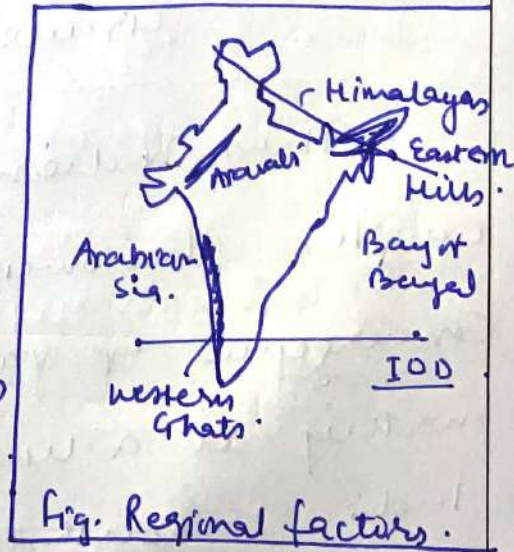 Himalayas
Aravali
Eastern
Hills.
Arabian
Sea.
Bay of
Bengal
IOD
Western
Ghats.
Fig. Regional factors.